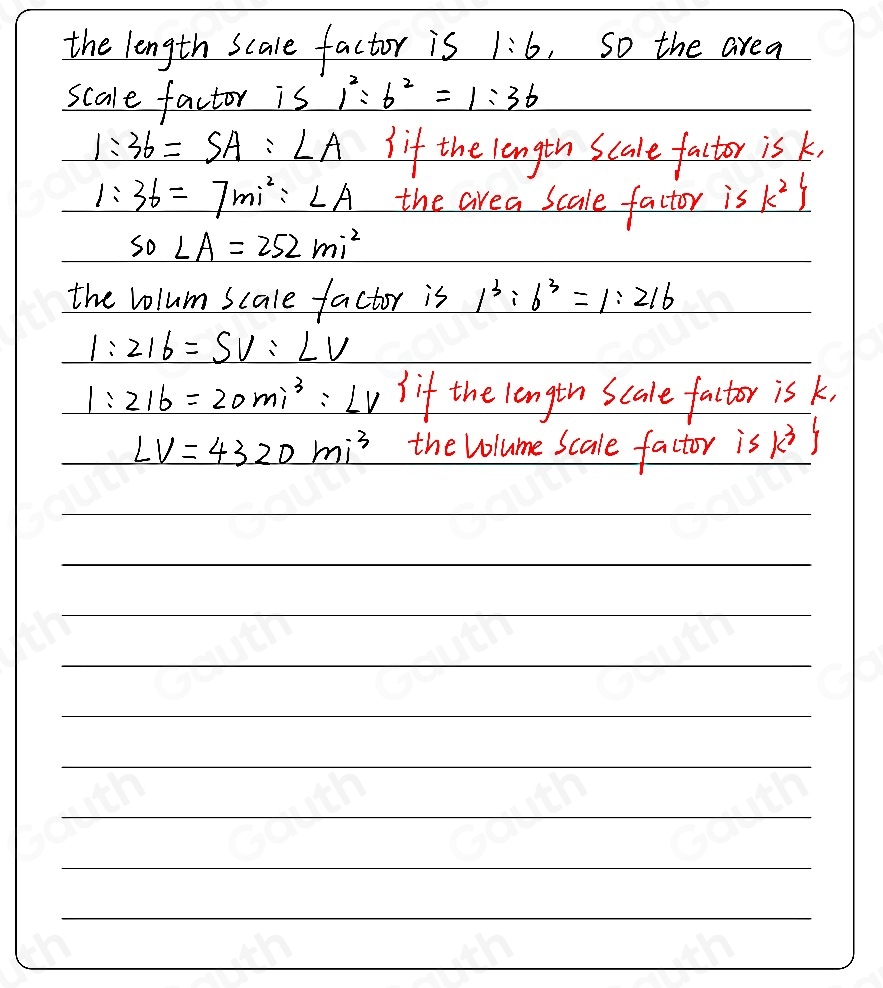 the length scale factor is 1:6, so the area
scale factor is 1² : 6² = 1:36
1:36 = SA : LA {if the length scale factor is k,
1:36 = 7mi² : LA the area scale factor is k²}
so LA = 252 mi²
the volum scale factor is 1³ : 6³ = 1:216
1:216 = SV : LV
1:216 = 20mi³ : LV {if the length scale factor is k,
LV = 4320 mi³ the volume scale factor is k³}
Gauth